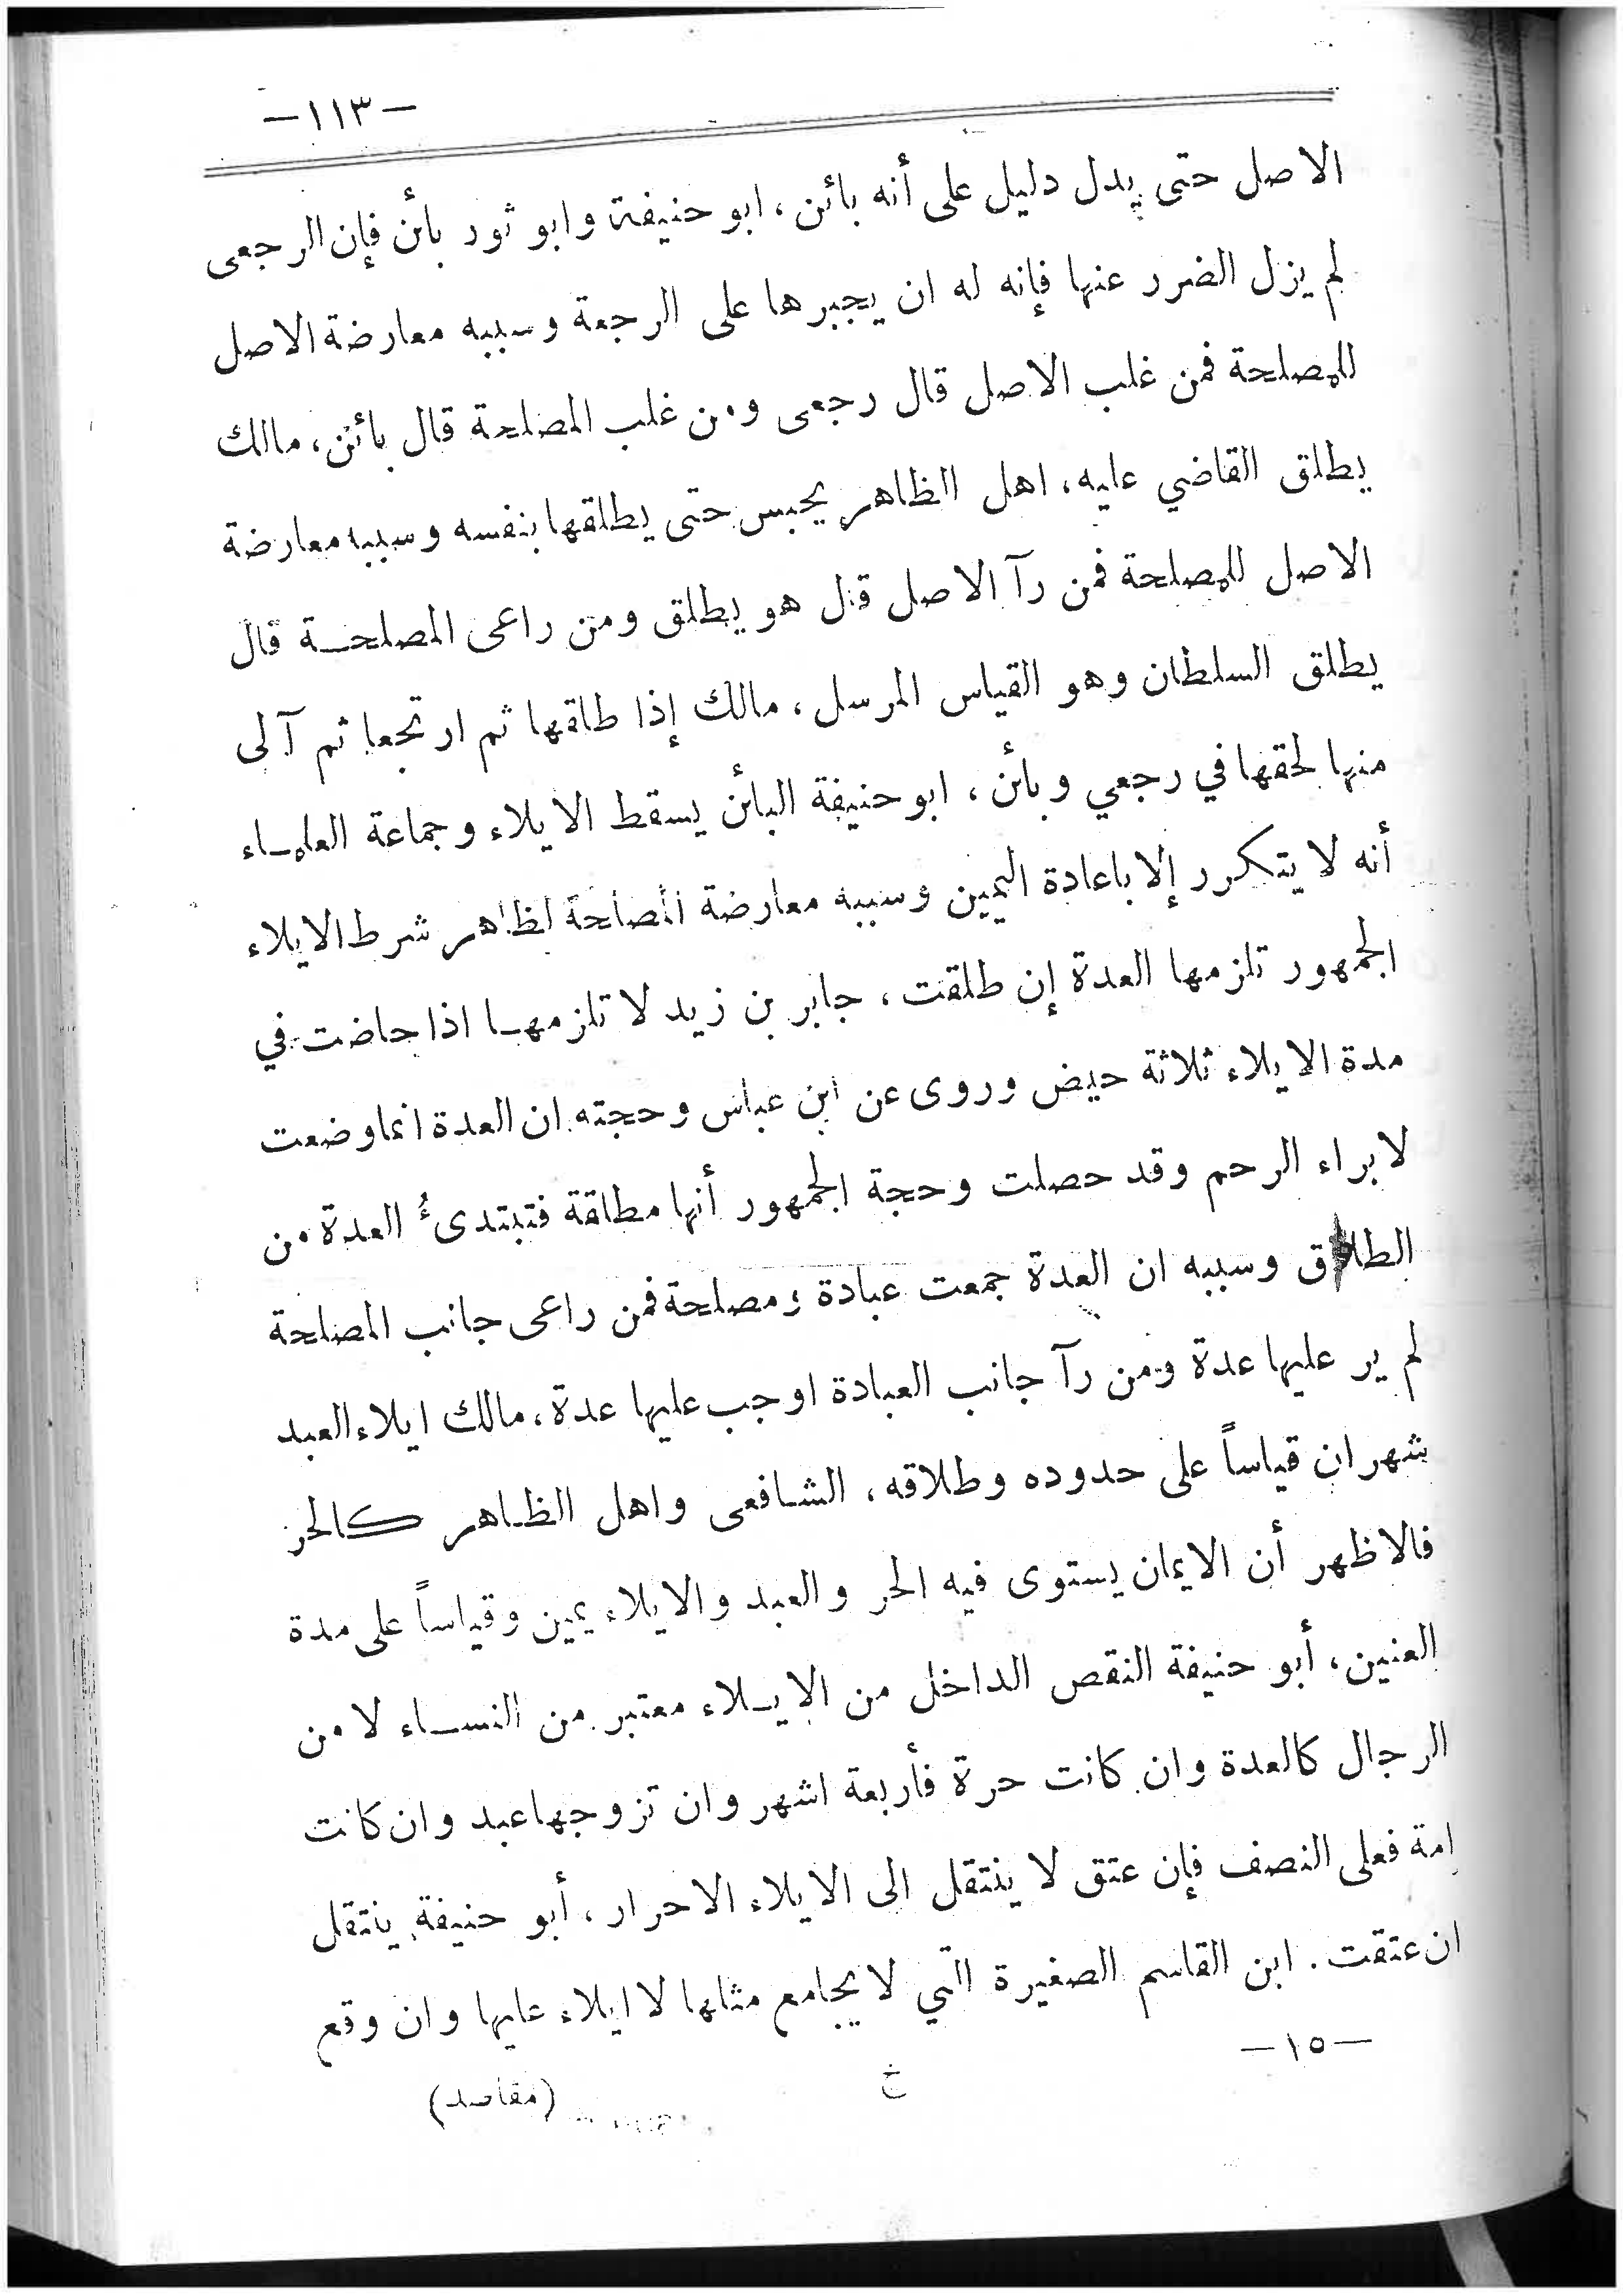 -١١٣-
الاصل حتى يدل دليل على أنه بائن ، ابو حنيفة وابو ثور بائن فإن الرجعى
لم يزل الضرر عنها فإنه له ان يجبرها على الرجعة وسببه معارضة الاصل
للمصلحة فمن غلب الاصل قال رجعى ومن غلب المصلحة قال بائن ، مالك
يطلق القاضي عليه ، اهل الظاهر يحبس حتى يطلقها بنفسه وسببه معارضة
الاصل للمصلحة فمن رآ الاصل قال هو يطلق ومن راعى المصلحة قال
يطلق السلطان وهو القياس المرسل ، مالك إذا طلقها ثم ارتجعا ثم آلى
منها لحقها في رجعي وبائن ، ابو حنيفة البائن يسقط الايلاء وجماعة العلماء
أنه لا يتكرر إلا باعادة اليمين وسببه معارضة المصلحة لظاهر شرط الايلاء
الجمهور تلزمها العدة إن طلقت ، جابر بن زيد لا تلزمها اذا حاضت في
مدة الايلاء ثلاثة حيض وروى عن ابن عباس وحجته ان العدة انما وضعت
لابراء الرحم وقد حصلت وحجة الجمهور أنها مطلقة فتبتدىُ العدة من
الطلاق وسببه ان العدة جمعت عبادة ومصلحة فمن راعى جانب المصلحة
لم ير عليها عدة ومن رآ جانب العبادة اوجب عليها عدة ، مالك ايلاء العبد
شهران قياساً على حدوده وطلاقه ، الشافعى واهل الظاهر كالحر
فالاظهر أن الايمان يستوى فيه الحر والعبد والايلاء يمين وقياساً على مدة
العنين ، أبو حنيفة النقص الداخل من الايلاء معتبر من النساء لا من
الرجال كالعدة وان كانت حرة فأربعة اشهر وان تزوجها عبد وان كانت
امة فعلى النصف فإن عتق لا ينتقل الى الايلاء الاحرار ، أبو حنيفة ينتقل
ان عتقت . ابن القاسم الصغيرة التي لا يجامع مثلها لا ايلاء عليها وان وقع
-١٥-
خ
(مقاصد)